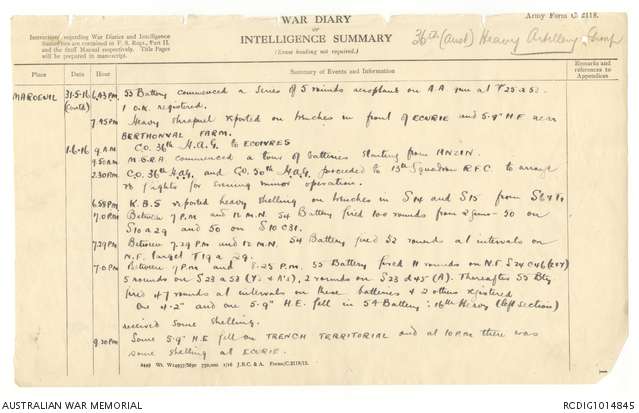 Army Form C. 2118.
WAR DIARY
OF
INTELLIGENCE SUMMARY
(Erase heading not required.)
36th (Aust) Heavy Artillery Group
Instructions regarding War Diaries and Intelligence
Summaries are contained in F. S. Regs., Part II.
and the Staff Manual respectively. Title Pages
will be prepared in manuscript.
Place
Date
Hour
Summary of Events and Information
Remarks and
references to
Appendices
MAROEUIL 31-5-16 6.43 PM 55 Battery commenced a series of 5 rounds aeroplane on A.A gun at T25
(contd) 1 O.K. registered.
7.45 PM Heavy shrapnel reported on trenches in front of ECURIE and 5.9" H.E near
BERTHONVAL FARM.
1-6-16 9 AM C.O. 36th H.A.G. to ECOIVRES
9.50 AM M.G.R.A commenced a tour of batteries starting from ANZIN.
2.30 PM C.O. 36th H.A.G. and C.O. 50th H.A.G. proceeded to 13th Squadron R.F.C to arrange
for evening minor operation.
6.58 PM K.B.5 reported heavy shelling on trenches in S14 and S15 from
7.0 PM Between 7 P.M and 12 M.N. 54 Battery fired 100 rounds from 2 guns - 50 on
S10 a 29 and 50 on S10 c 31.
7.29 PM Between 7.29 P.M and 12 M.N. 54 Battery fired 52 rounds at intervals on
N.F. target T19 a 29.
7.0 PM Between 7 P.M. and 8.25 P.M. 55 Battery fired 11 rounds on N.F S24 c 46
5 rounds on S23 a 53 2 rounds on S23 d 45 (A). Thereafter 55 Bty
fired 47 rounds at intervals on these batteries & 2 others registered
One 4.2" and one 5.9" H.E. fell in 54 Battery: 16th Heavy (left section)
received some shelling.
9.30 PM Some 5.9" H.E fell on TRENCH TERRITORIAL and at 10 P.M there was
some shelling at ECURIE.
AUSTRALIAN WAR MEMORIAL
RCDIG1014845